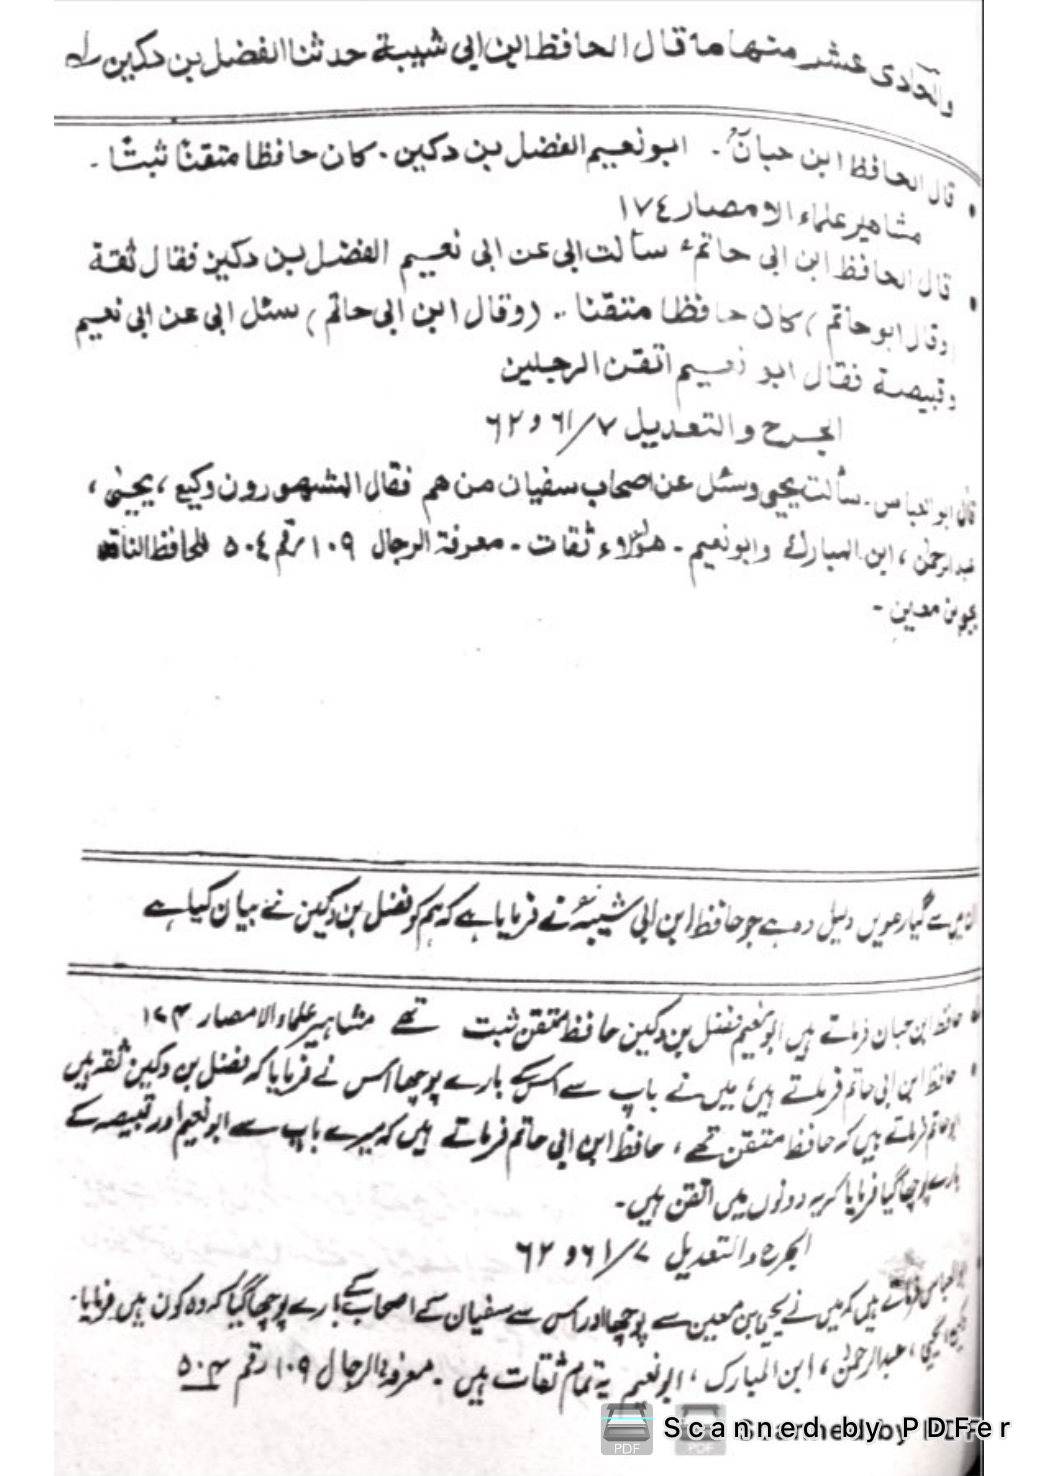 والحادى عشر منها ما قال الحافظ ابن ابى شيبة حدثنا الفضل بن دكين
• قال الحافظ ابن حبانؒ ۔ ابو نعيم الفضل بن دكين ۔ كان حافظا متقنًا ثبتًا ۔
مشاهير علماء الامصار ١٧٤
• قال الحافظ ابن ابى حاتمؒ سألت ابى عن ابى نعيم الفضل بن دكين فقال ثقة
(وقال ابو حاتم) كان حافظا متقنا .. (وقال ابن ابى حاتم) سئل ابى عن ابى نعيم
وقبيصة فقال ابو نعيم اتقن الرجلين
الجرح والتعديل ٧/٦١ و ٦٢
قال ابو العباس ۔ سألت يحيى وسئل عن اصحاب سفيان من هم فقال المشهورون وكيع ، يحيىٰ ،
عبدالرحمٰن ، ابن المبارك وابونعيم ۔ هؤلاء ثقات ۔ معرفة الرجال ١٠٩ رقم ٥٠٤ للحافظ الناقد
يحيىٰ بن معين ۔
ان میں سے گیارھویں دلیل وہ ہے جو حافظ ابن ابی شیبہؒ نے فرمایا ہے کہ ہم کو فضل بن دکین نے بیان کیا ہے
حافظ ابن حبان فرماتے ہیں ابو نعیم فضل بن دکین حافظ متقن ثبت تھے مشاہیر علماء الامصار ۱۷۴
• حافظ ابن ابی حاتم فرماتے ہیں میں نے باپ سے اس کے بارے پوچھا اس نے فرمایا کہ فضل بن دکین ثقہ ہیں
ابو حاتم فرماتے ہیں کہ حافظ متقن تھے ، حافظ ابن ابی حاتم فرماتے ہیں کہ میرے باپ سے ابو نعیم اور قبیصہ کے
بارے پوچھا گیا فرمایا کہ یہ دونوں میں اتقن ہیں۔
الجرح والتعدیل ۷/۶۱ و ۶۲
ابو العباس فرماتے ہیں کہ میں نے یحییٰ بن معین سے پوچھا اور اس سے سفیان کے اصحاب کے بارے پوچھا گیا کہ وہ کون ہیں فرمایا۔
وکیع ، یحییٰ ، عبدالرحمٰن ، ابن المبارک ، ابو نعیم یہ تمام ثقات ہیں ۔ معرفۃ الرجال ۱۰۹ رقم ۵۰۴
Scanned by PDFer